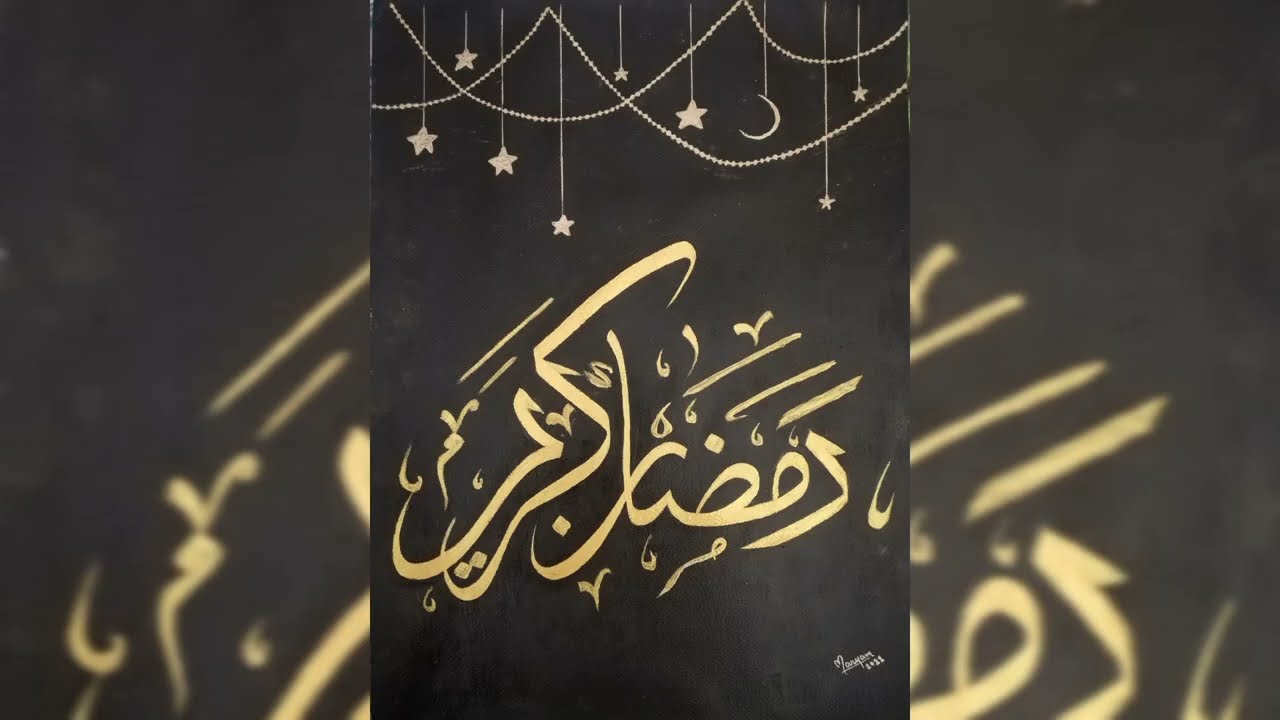 رمضان كريم
Maryam
2021